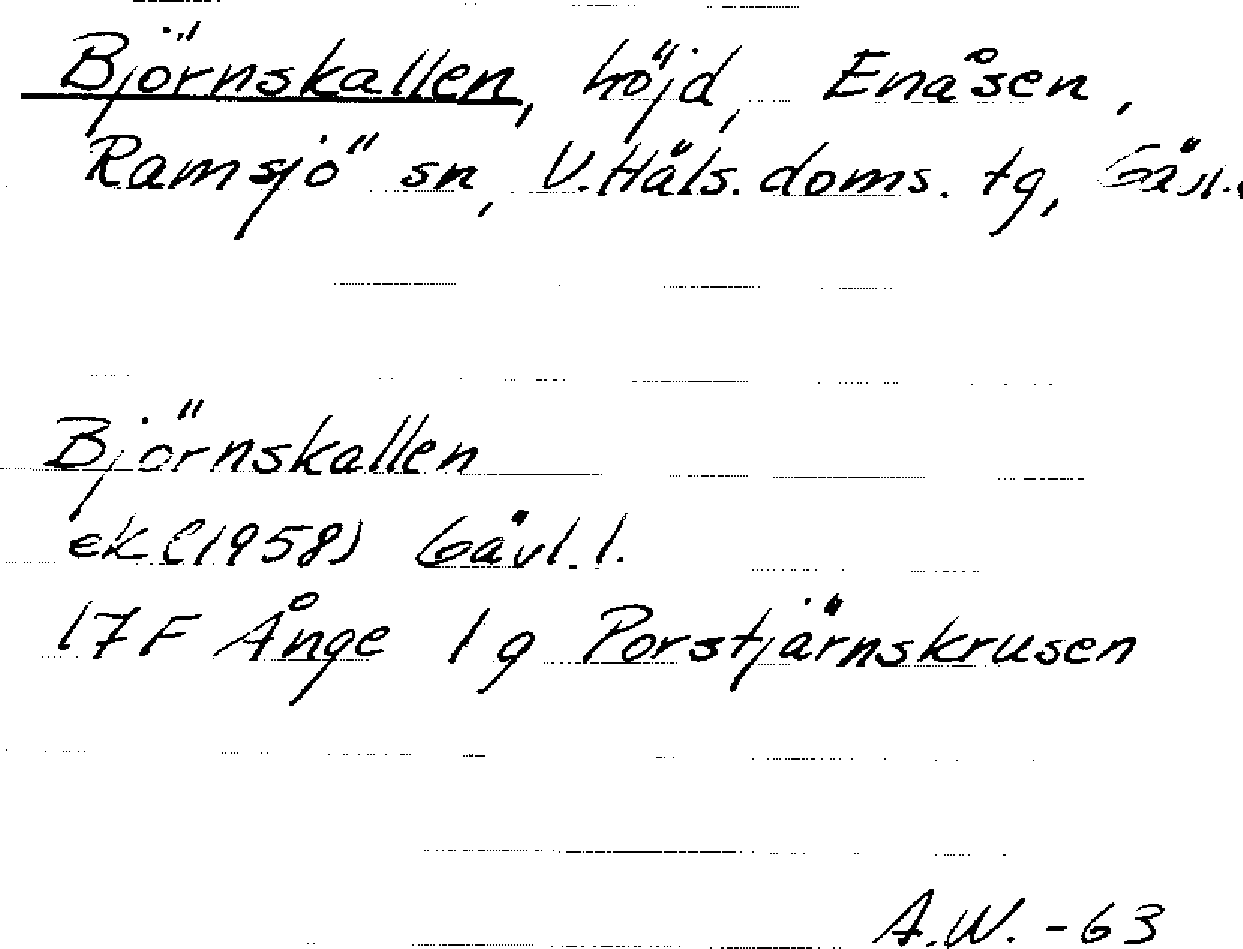 Björnskallen, höjd, Enåsen,
Ramsjö sn, V. Häls. doms. tg, Gävl.
Björnskallen
ek (1958) Gävl. l.
17F Ånge 1g Porstjärnskrusen
A.W. -63